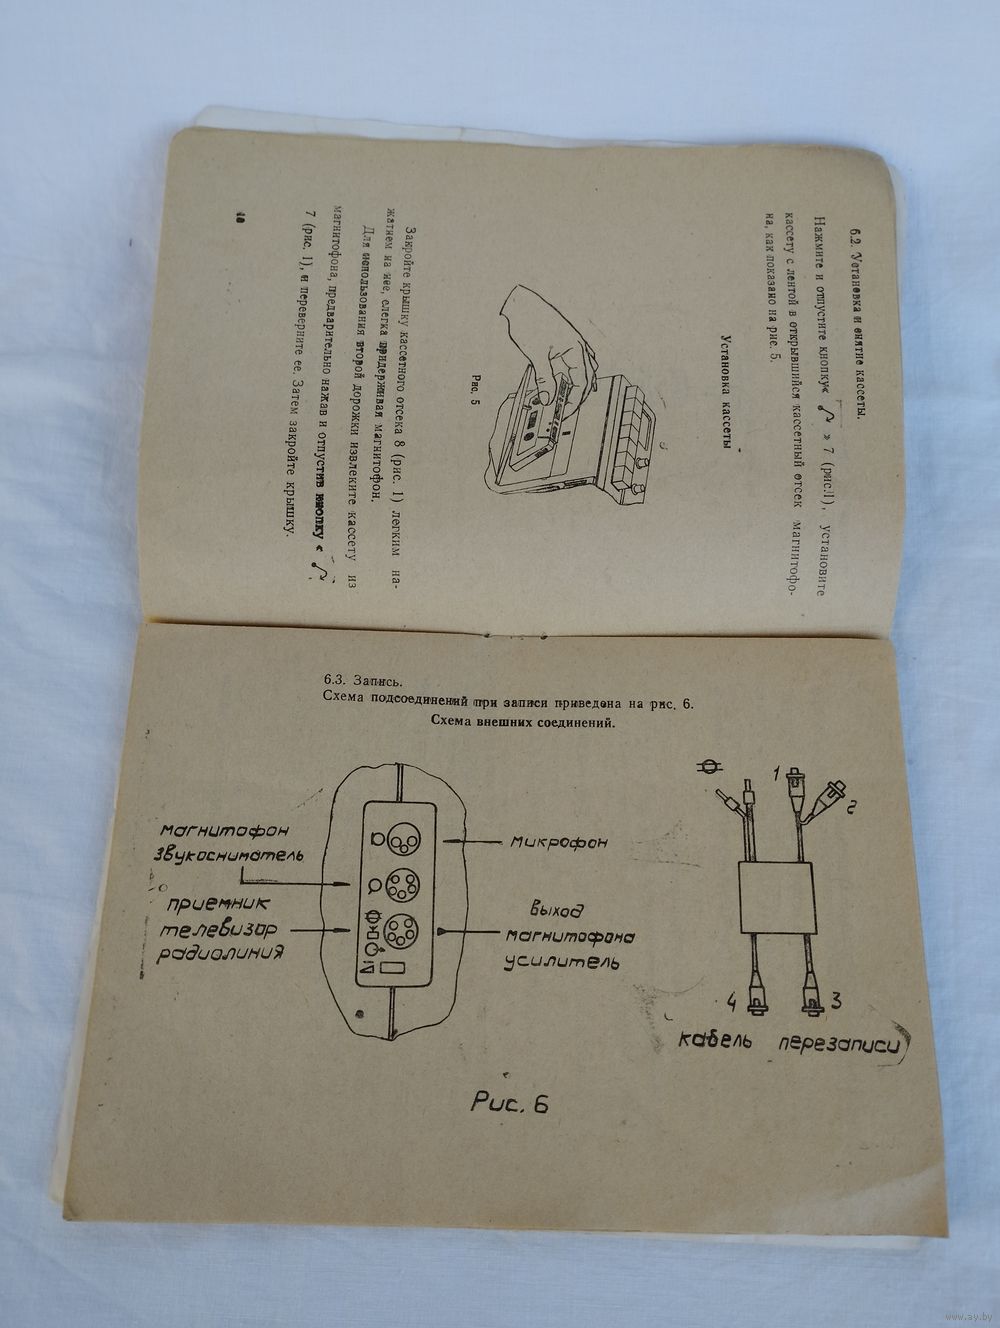 6.2. Установка и снятие кассеты.
Нажмите и отпустите кнопку « » 7 (рис. 1), установите
кассету с лентой в открывшийся кассетный отсек магнитофо-
на, как показано на рис. 5.
Установка кассеты
Рис. 5
Закройте крышку кассетного отсека 8 (рис. 1) легким на-
жатием на нее, слегка придерживая магнитофон.
Для использования второй дорожки извлеките кассету из
магнитофона, предварительно нажав и отпустив кнопку « »
7 (рис. 1), и переверните ее. Затем закройте крышку.
10
6.3. Запись.
Схема подсоединений при записи приведена на рис. 6.
Схема внешних соединений.
магнитофон
звукосниматель
приемник
телевизор
радиолиния
микрофон
выход
магнитофона
усилитель
1
2
4
3
кабель перезаписи
Рис. 6
www.ay.by